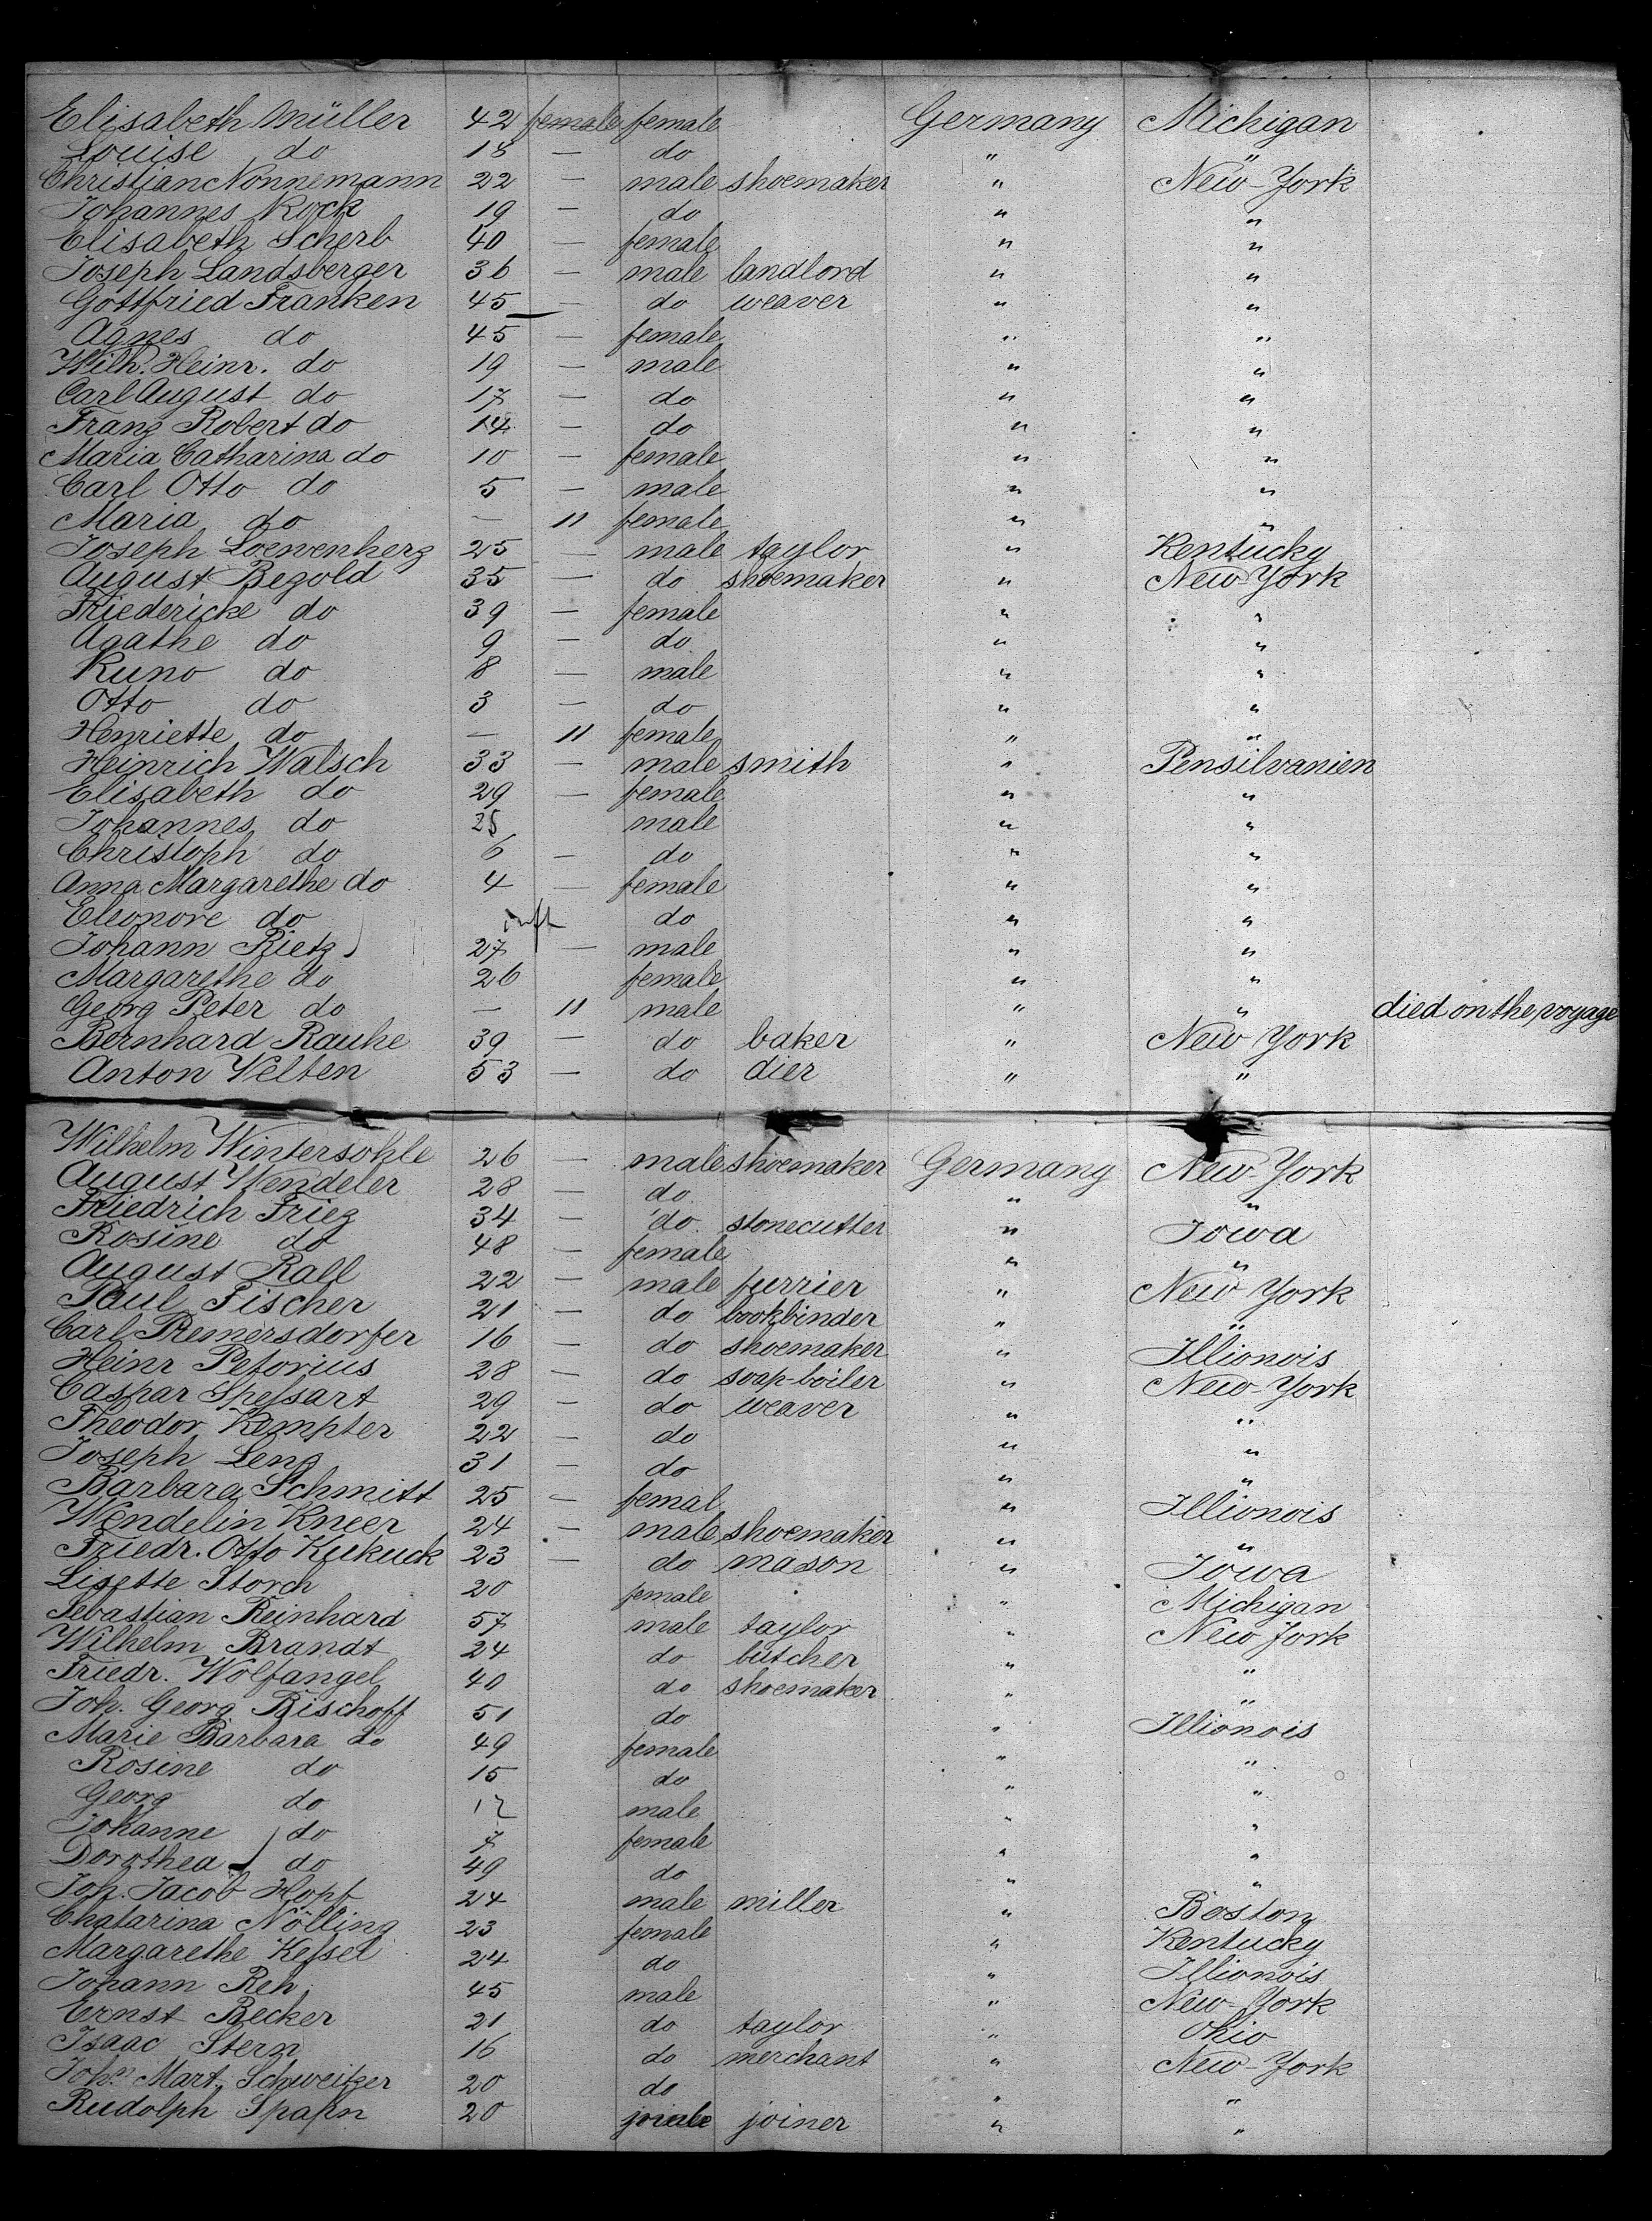 Elisabeth Müller 42 female female Germany Michigan
Louise do 18 — do " "
Christian Nonnemann 22 — male shoemaker " New-York
Johannes Kock 19 — do " "
Elisabeth Scherb 40 — female " "
Joseph Landsberger 36 — male landlord " "
Gottfried Franken 45 — do weaver " "
Agnes do 45 — female " "
Wilh. Heinr. do 19 — male " "
Carl August do 17 — do " "
Franz Robert do 14 — do " "
Maria Catharina do 10 — female " "
Carl Otto do 5 — male " "
Maria do — 11 female " "
Joseph Loewenherz 25 — male taylor " Kentucky
August Bezold 35 — do shoemaker " New York
Friedericke do 39 — female " "
Agathe do 9 — do " "
Kuno do 8 — male " "
Otto do 3 — do " "
Henriette do — 11 female " "
Heinrich Walsch 33 — male smith " Pensilvanien
Elisabeth do 29 — female " "
Johannes do 25 male " "
Christoph do 6 — do " "
Anna Margarethe do 4 — female " "
Eleonore do inft do " "
Johann Rietz 27 — male " "
Margarethe do 26 female " "
Georg Peter do — 11 male " " died on the voyage
Bernhard Rauhe 39 — do baker " New York
Anton Velten 53 — do dier " "
Wilhelm Wintersohle 26 — male shoemaker Germany New-York
August Wendeler 28 — do " "
Friedrich Friez 34 — do stonecutter " Iowa
Rosine do 48 — female " "
August Rall 22 — male furrier " New York
Paul Fischer 21 — do bookbinder " "
Carl Premersdorfer 16 — do shoemaker " Illionois
Heinr Petorius 28 — do soap-boiler " New-York
Caspar Speſsart 29 — do weaver " "
Theodor Kempter 22 — do " "
Joseph Leng 31 — do " "
Barbara Schmitt 25 — femal " Illionois
Wendelin Kneer 24 — male shoemaker " "
Friedr. Otto Kukuck 23 — do mason " Iowa
Lisette Storch 20 female " Michigan
Sebastian Reinhard 57 male taylor " New York
Wilhelm Brandt 24 do butcher " "
Friedr. Wolfangel 40 do shoemaker " "
Joh. Georg Bischoff 51 do " Illionois
Marie Barbara do 49 female " "
Rosine do 15 do " "
Georg do 12 male " "
Johanne do 7 female " "
Dorothea do 49 do " "
Joh. Jacob Hopf 24 male miller " Boston
Chatarina Nölling 23 female " Kentucky
Margarethe Keſsel 24 do " Illionois
Johann Reh 45 male " New-York
Ernst Becker 21 do taylor " Ohio
Isaac Stern 16 do merchant " New-York
Joh. Mart. Schweitzer 20 do " "
Rudolph Spahn 20 joiner " "